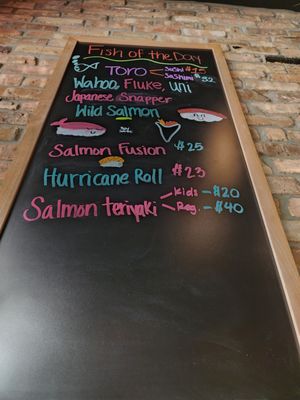 Fish of the Day
TORO Sushi $15
Sashimi $32
Wahoo, Fluke, uni
Japanese Snapper
Wild Salmon
Salmon Fusion $25
Hurricane Roll $23
Salmon teriyaki Kids - $20
Reg. - $40